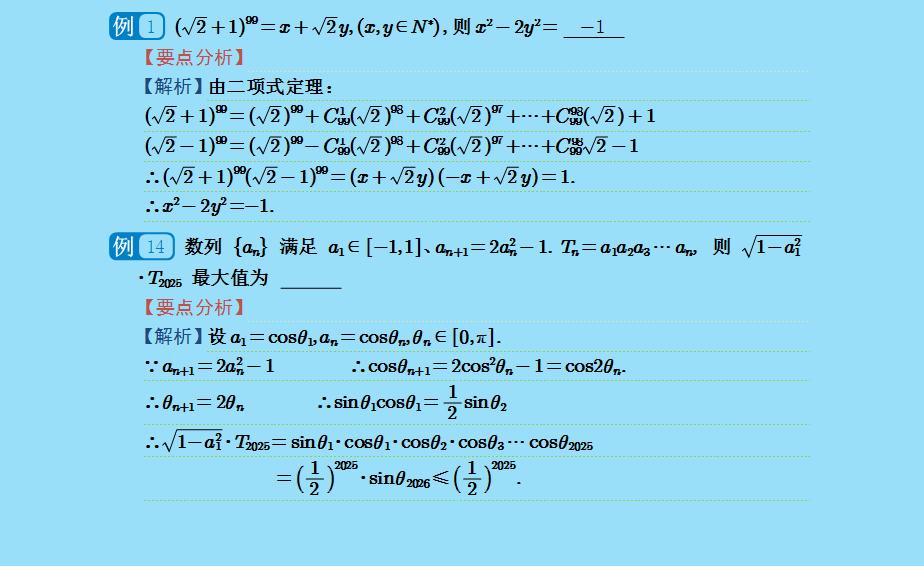 例 1 (√2+1)⁹⁹=x+√2y,(x,y∈N*),则 x²−2y²= −1
【要点分析】
【解析】由二项式定理:
(√2+1)⁹⁹=(√2)⁹⁹+C¹₉₉(√2)⁹⁸+C²₉₉(√2)⁹⁷+⋯+C⁹⁸₉₉(√2)+1
(√2−1)⁹⁹=(√2)⁹⁹−C¹₉₉(√2)⁹⁸+C²₉₉(√2)⁹⁷+⋯+C⁹⁸₉₉√2−1
∴(√2+1)⁹⁹(√2−1)⁹⁹=(x+√2y)(−x+√2y)=1.
∴x²−2y²=−1.
例 14 数列 {aₙ} 满足 a₁∈[−1,1]、aₙ₊₁=2aₙ²−1. Tₙ=a₁a₂a₃⋯aₙ, 则 √(1−a₁²)
·T₂₀₂₅ 最大值为 ______
【要点分析】
【解析】设 a₁=cosθ₁,aₙ=cosθₙ,θₙ∈[0,π].
∵aₙ₊₁=2aₙ²−1 ∴cosθₙ₊₁=2cos²θₙ−1=cos2θₙ.
∴θₙ₊₁=2θₙ ∴sinθ₁cosθ₁=1/2 sinθ₂
∴√(1−a₁²)·T₂₀₂₅=sinθ₁·cosθ₁·cosθ₂·cosθ₃⋯cosθ₂₀₂₅
=(1/2)²⁰²⁵·sinθ₂₀₂₆≤(1/2)²⁰²⁵.